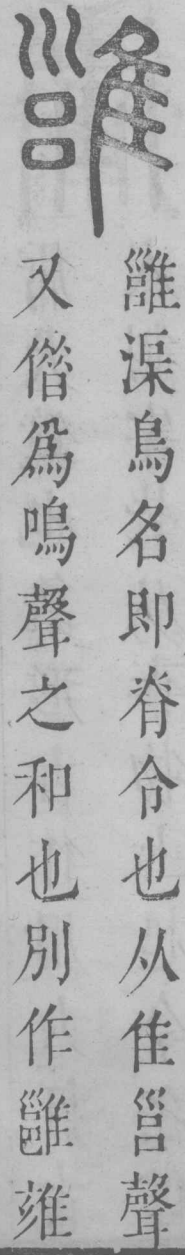 渠鳥名即脊令也从隹聲
又僭爲鳴聲之和也別作雝雍